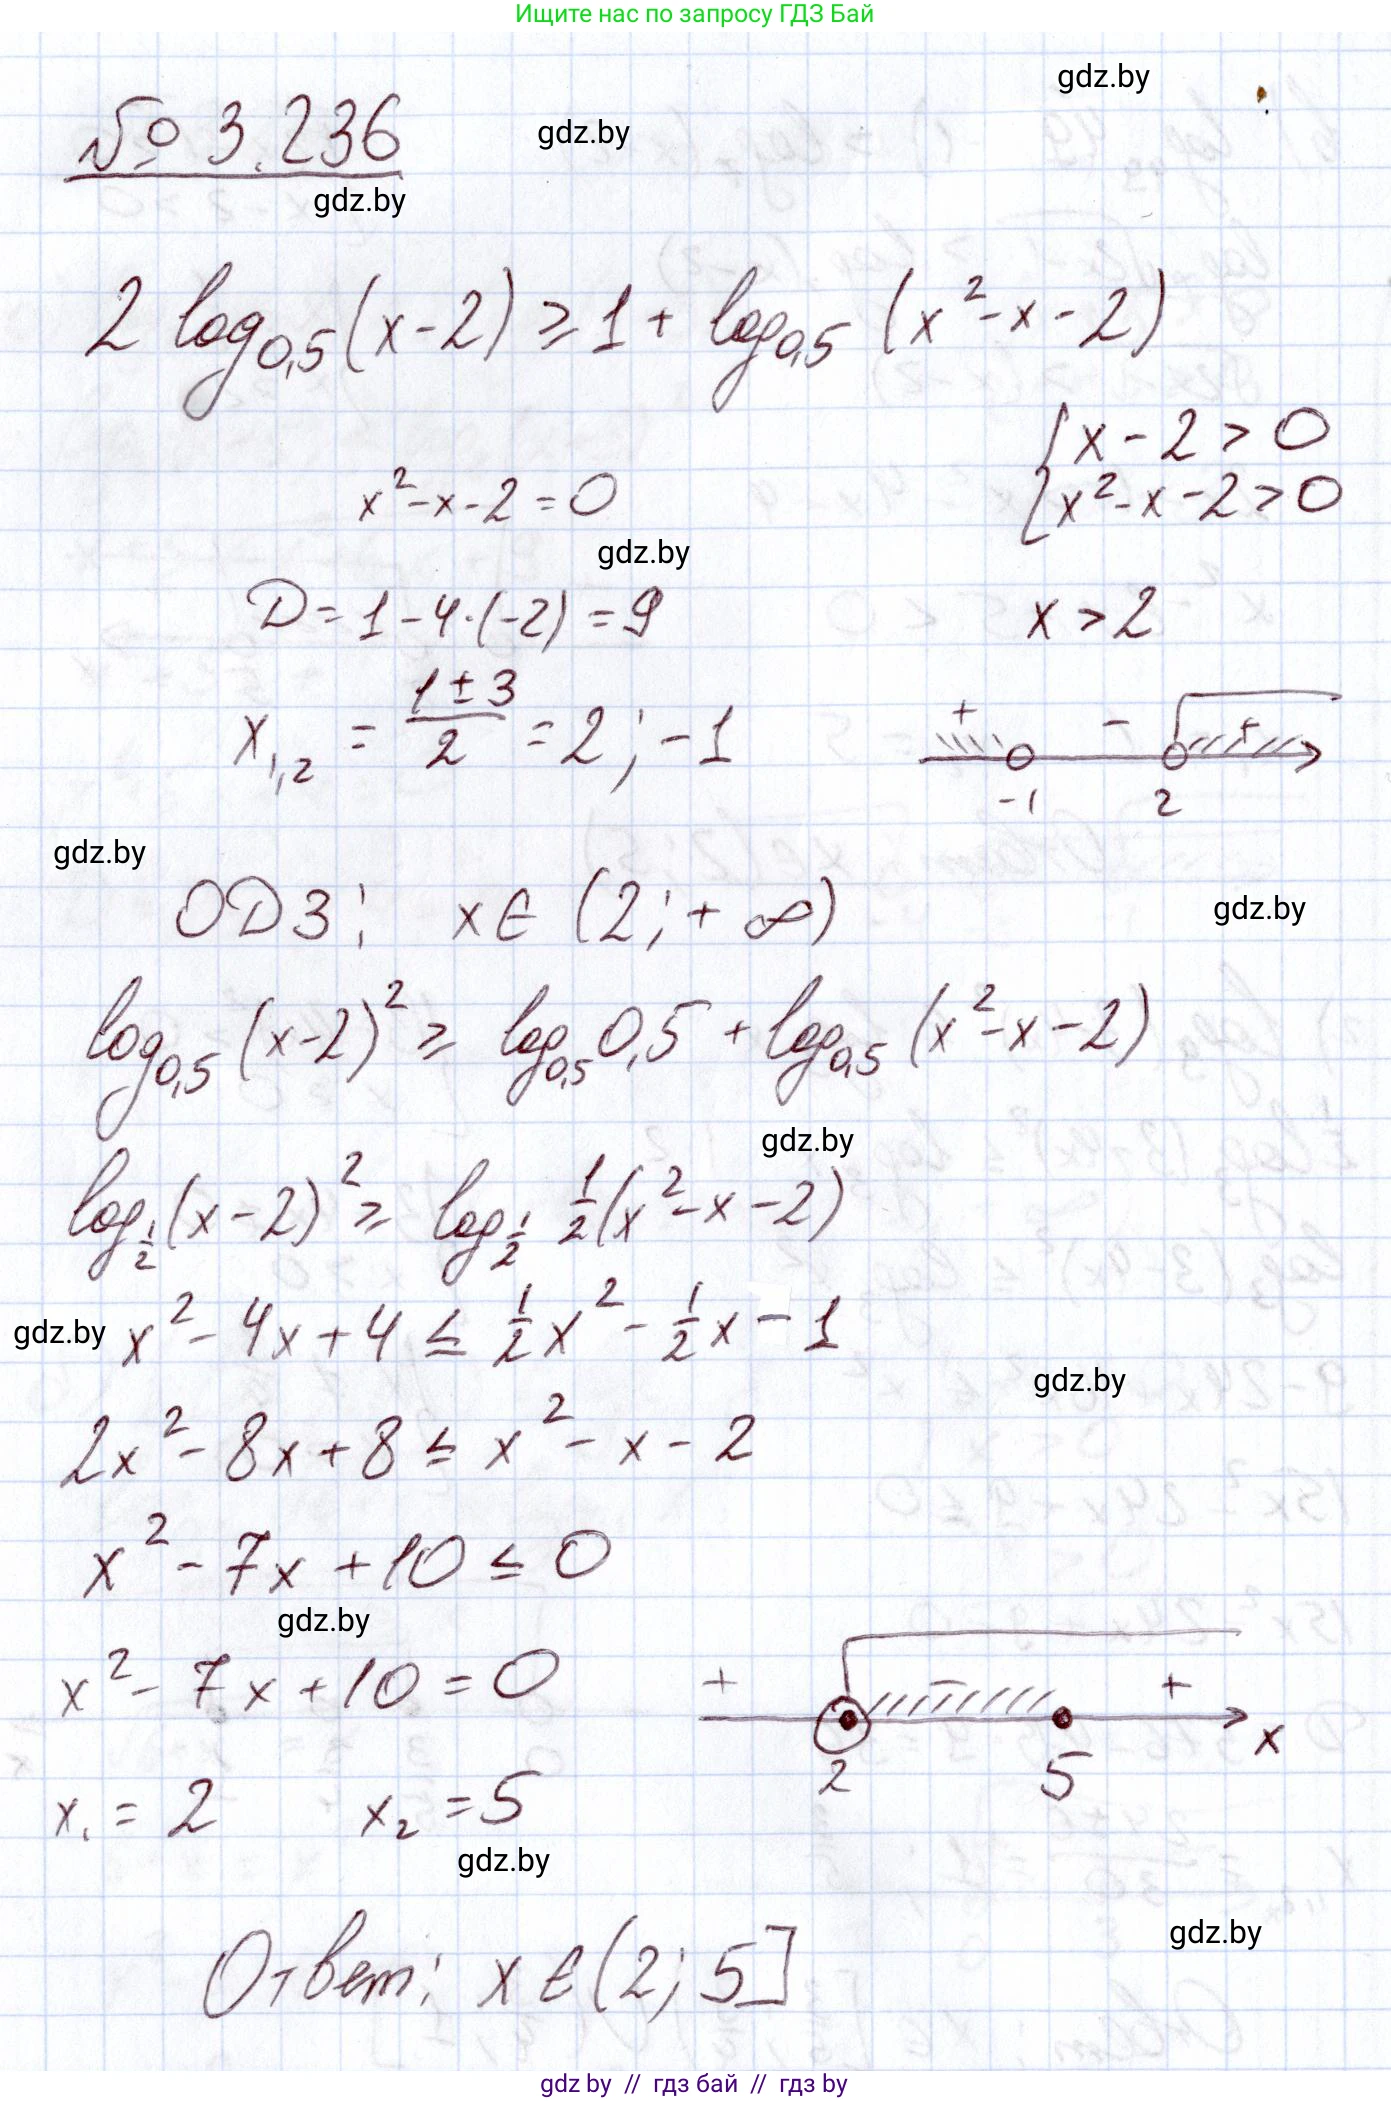 Ищите нас по запросу ГДЗ Бай
gdz.by
№ 3.236
gdz.by
gdz.by
2 log₀,₅(x-2) ≥ 1 + log₀,₅ (x²-x-2)
{x-2>0
x²-x-2=0
{x²-x-2>0
gdz.by
D=1-4·(-2)=9
x>2
x₁,₂ = (1±3)/2 = 2; -1
+ - +
-1 2
gdz.by
ОДЗ: x∈ (2;+∞)
gdz.by
log₀,₅(x-2)² ≥ log₀,₅0,5 + log₀,₅ (x²-x-2)
gdz.by
log_½(x-2)² ≥ log_½ ½(x²-x-2)
gdz.by
x²-4x+4 ≤ ½x² - ½x - 1
gdz.by
2x²-8x+8 ≤ x²-x-2
x²-7x+10 ≤ 0
gdz.by
x²-7x+10=0
+ - +
2 5 x
x₁=2 x₂=5
gdz.by
gdz.by
Ответ: x∈(2;5]
gdz by // гдз бай // gdz by